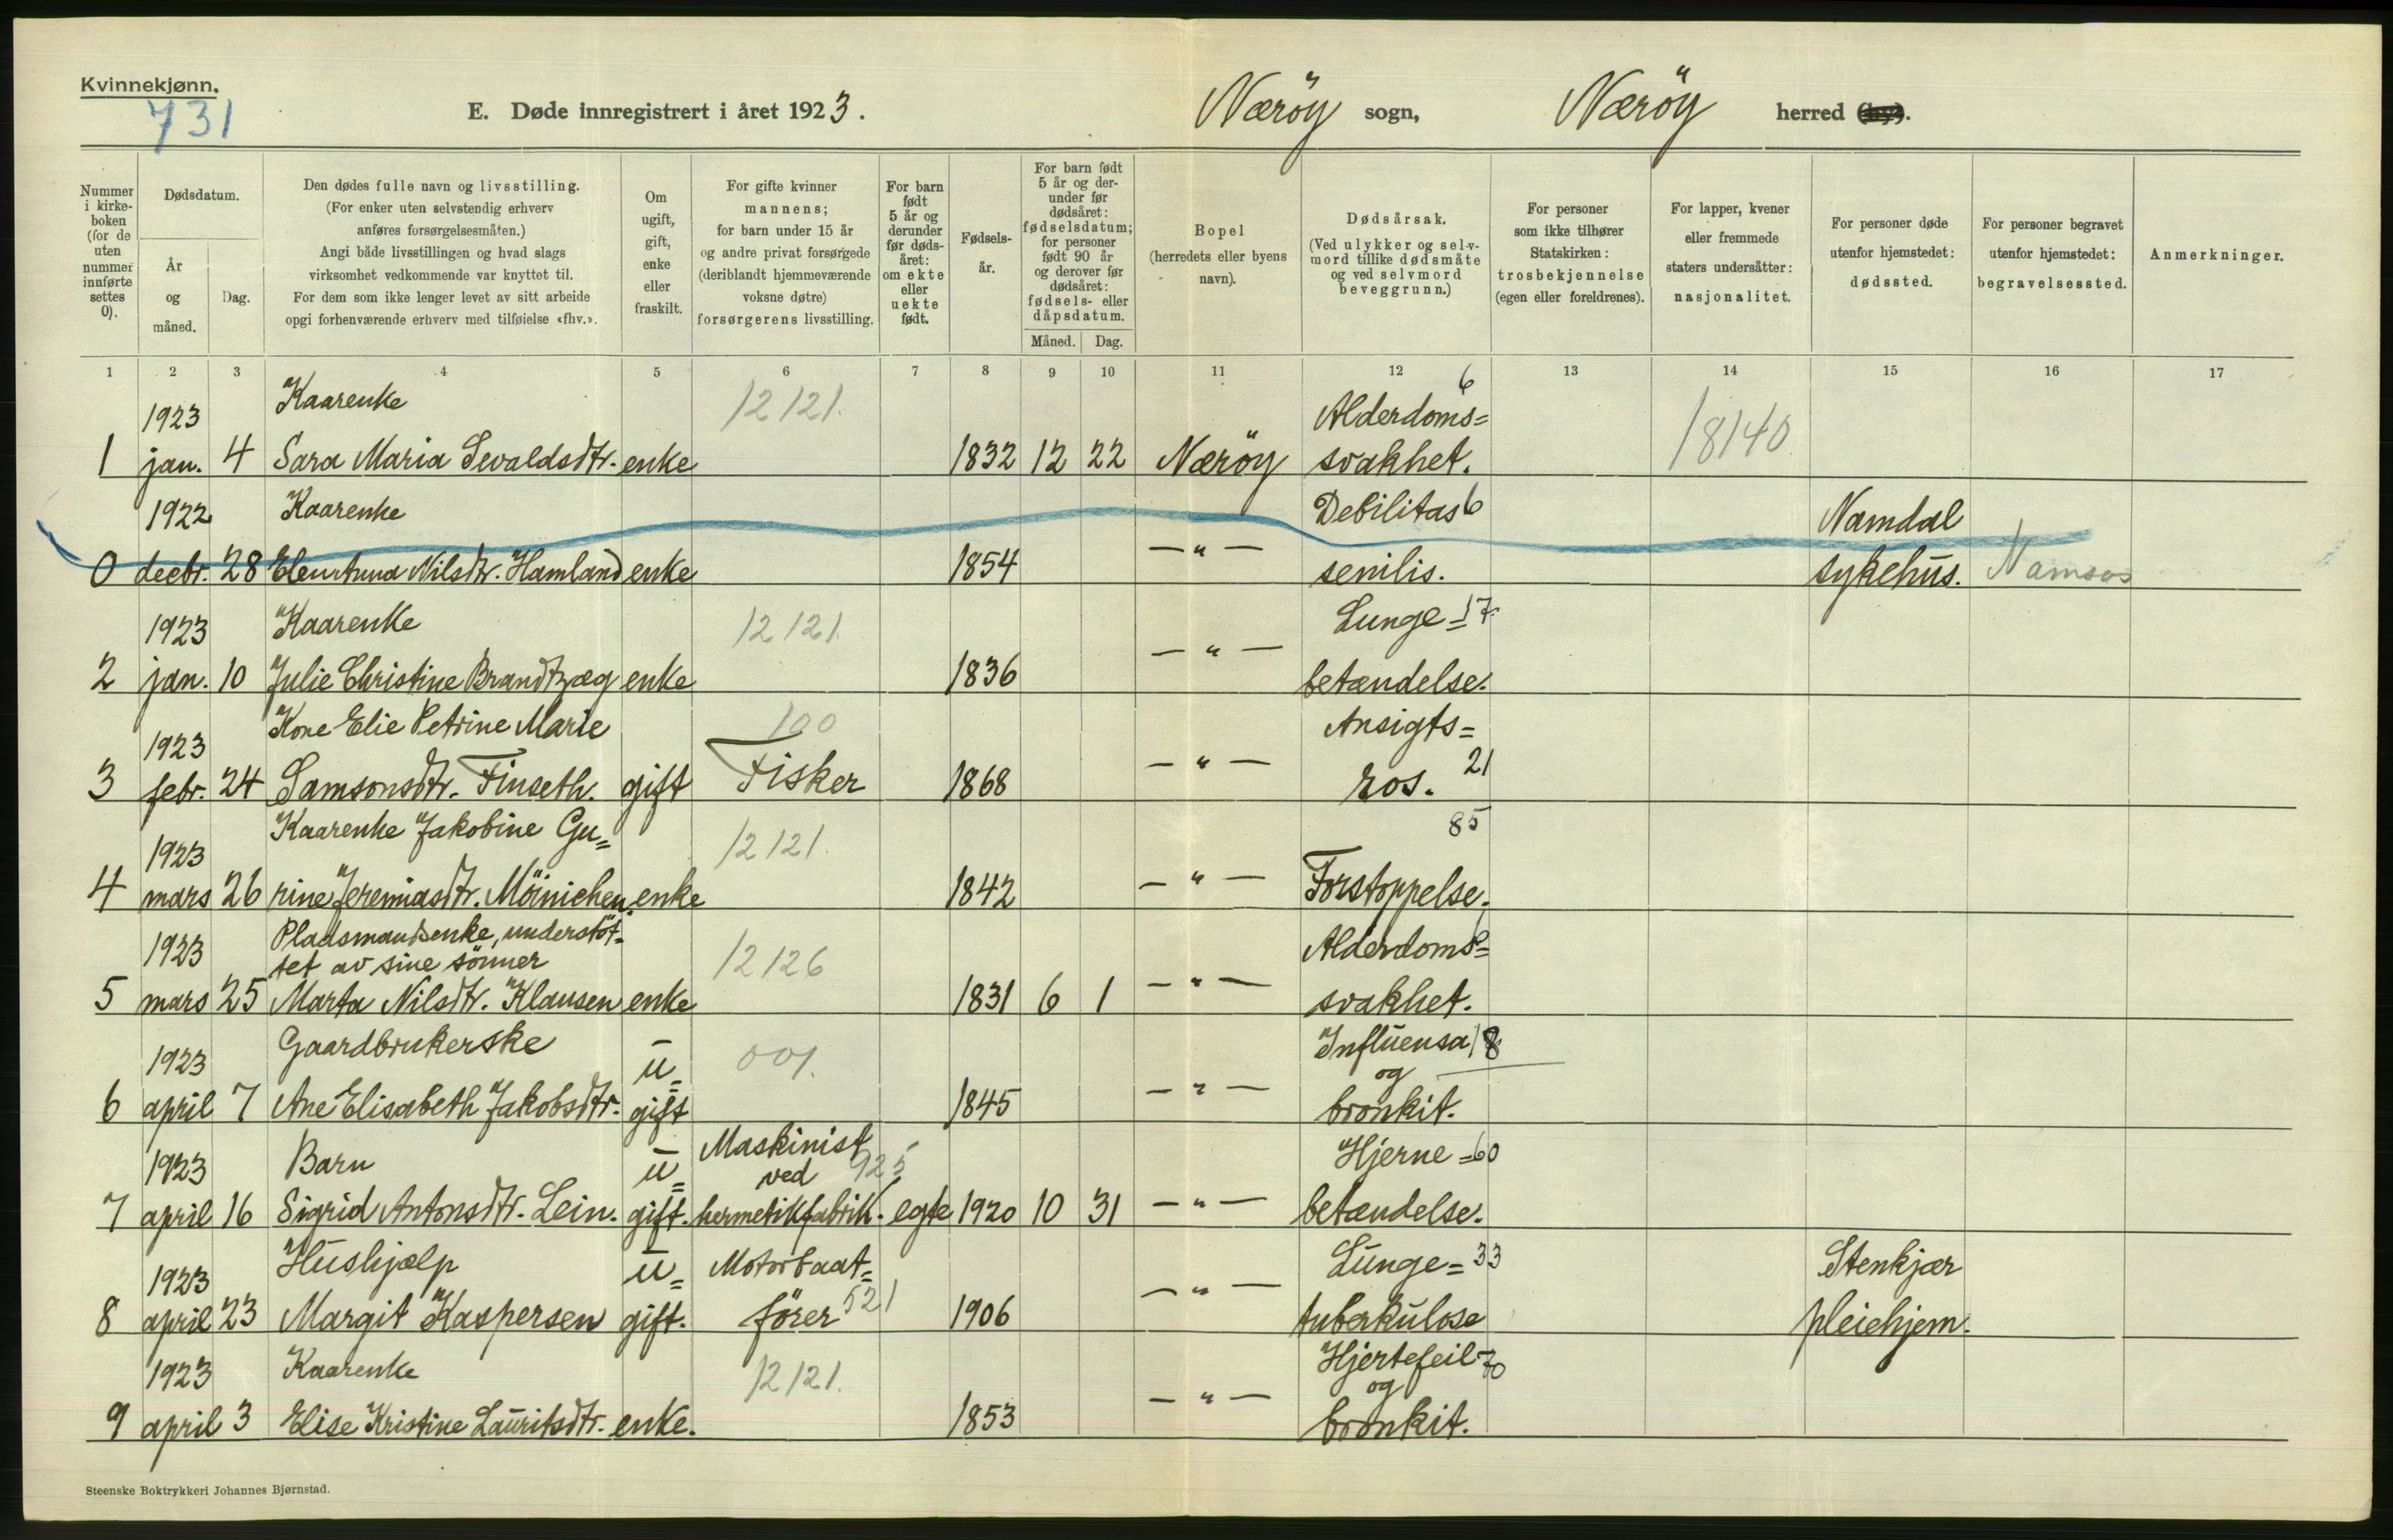 Kvinnekjønn.
731
E. Døde innregistrert i året 1923.
Nærøy sogn, Nærøy herred (by).
Nummer i kirke-boken (for de uten nummer innførte settes 0).
Dødsdatum.
År og måned.
Dag.
Den dødes fulle navn og livsstilling.
(For enker uten selvstendig erhverv anføres forsørgelsesmåten.)
Angi både livsstillingen og hvad slags virksomhet vedkommende var knyttet til.
For dem som ikke lenger levet av sitt arbeide opgi forhenværende erhverv med tilføielse «fhv.».
Om ugift, gift, enke eller fraskilt.
For gifte kvinner mannens; for barn under 15 år og andre privat forsørgede (deriblandt hjemmeværende voksne døtre) forsørgerens livsstilling.
For barn født 5 år og derunder før døds-året: om ekte eller uekte født.
Fødsels-år.
For barn født 5 år og der-under før dødsåret: fødselsdatum; for personer født 90 år og derover før dødsåret: fødsels- eller dåpsdatum.
Måned. Dag.
Bopel (herredets eller byens navn).
Dødsårsak.
(Ved ulykker og selv-mord tillike dødsmåte og ved selvmord beveggrunn.)
For personer som ikke tilhører Statskirken: trosbekjennelse (egen eller foreldrenes).
For lapper, kvener eller fremmede staters undersåtter: nasjonalitet.
For personer døde utenfor hjemstedet: dødssted.
For personer begravet utenfor hjemstedet: begravelsessted.
Anmerkninger.
1 2 3 4 5 6 7 8 9 10 11 12 13 14 15 16 17
1923 Kaarenke 12121. Alderdoms= 6 18140
1 jan. 4 Sara Maria Sevaldsdtr. enke 1832 12 22 Nærøy svakhet.
1922 Kaarenke Debilitas 6 Namdal
0 decbr. 28 Nilsdtr. Hamland enke 1854 — " — senilis. sykehus. Namsos
1923 Kaarenke 12121. Lunge= 17
2 jan. 10 Julie Christine Brandtzæg enke 1836 — " — betændelse.
1923 Kone Elie Petrine Marie 100 Ansigts=
3 febr. 24 Samsonsdtr. Finseth. gift Fisker 1868 — " — ros. 21
1923 Kaarenke Jakobine Gu= 12121. 85
4 mars 26 rine Jeremiasdtr. Möinichen. enke 1842 — " — Forstoppelse.
1923 Pladsmandsenke, understöt=
tet av sine sönner 12126 Alderdoms=
5 mars 25 Marta Nilsdtr. Klausen enke 1831 6 1 — " — svakhet.
1923 Gaardbrukerske u= 001. Influensa 18
og
6 april 7 Ane Elisabeth Jakobsdtr. gift 1845 — " — bronkit.
1923 Barn u= Maskinist Hjerne= 60
ved 925
7 april 16 Sigrid Antonsdtr. Lein. gift. hermetikfabrik. egte 1920 10 31 — " — betændelse.
1923 Hushjælp u= Motorbaat= Lunge= 33 Stenkjær
8 april 23 Margit Kaspersen gift. förer 521 1906 — " — tuberkulose pleiehjem.
1923 Kaarenke 12121. Hjertefeil 70
og
9 april 3 Elise Kristine Lauritsdtr. enke. 1853 — " — bronkit.
Steenske Boktrykkeri Johannes Bjørnstad.